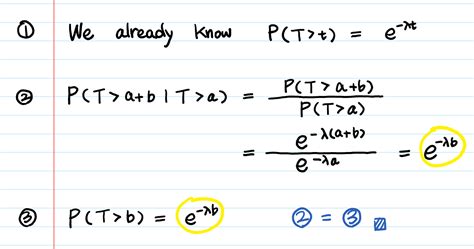 ① We already know P(T>t) = e^{-λt}
② P(T>a+b | T>a) = P(T>a+b) / P(T>a)
= e^{-λ(a+b)} / e^{-λa} = e^{-λb}
③ P(T>b) = e^{-λb} ② = ③ ▨